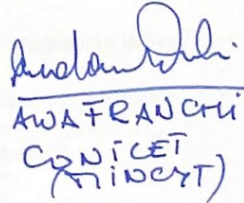 ANA FRANCHI
CONICET
(MINCYT)